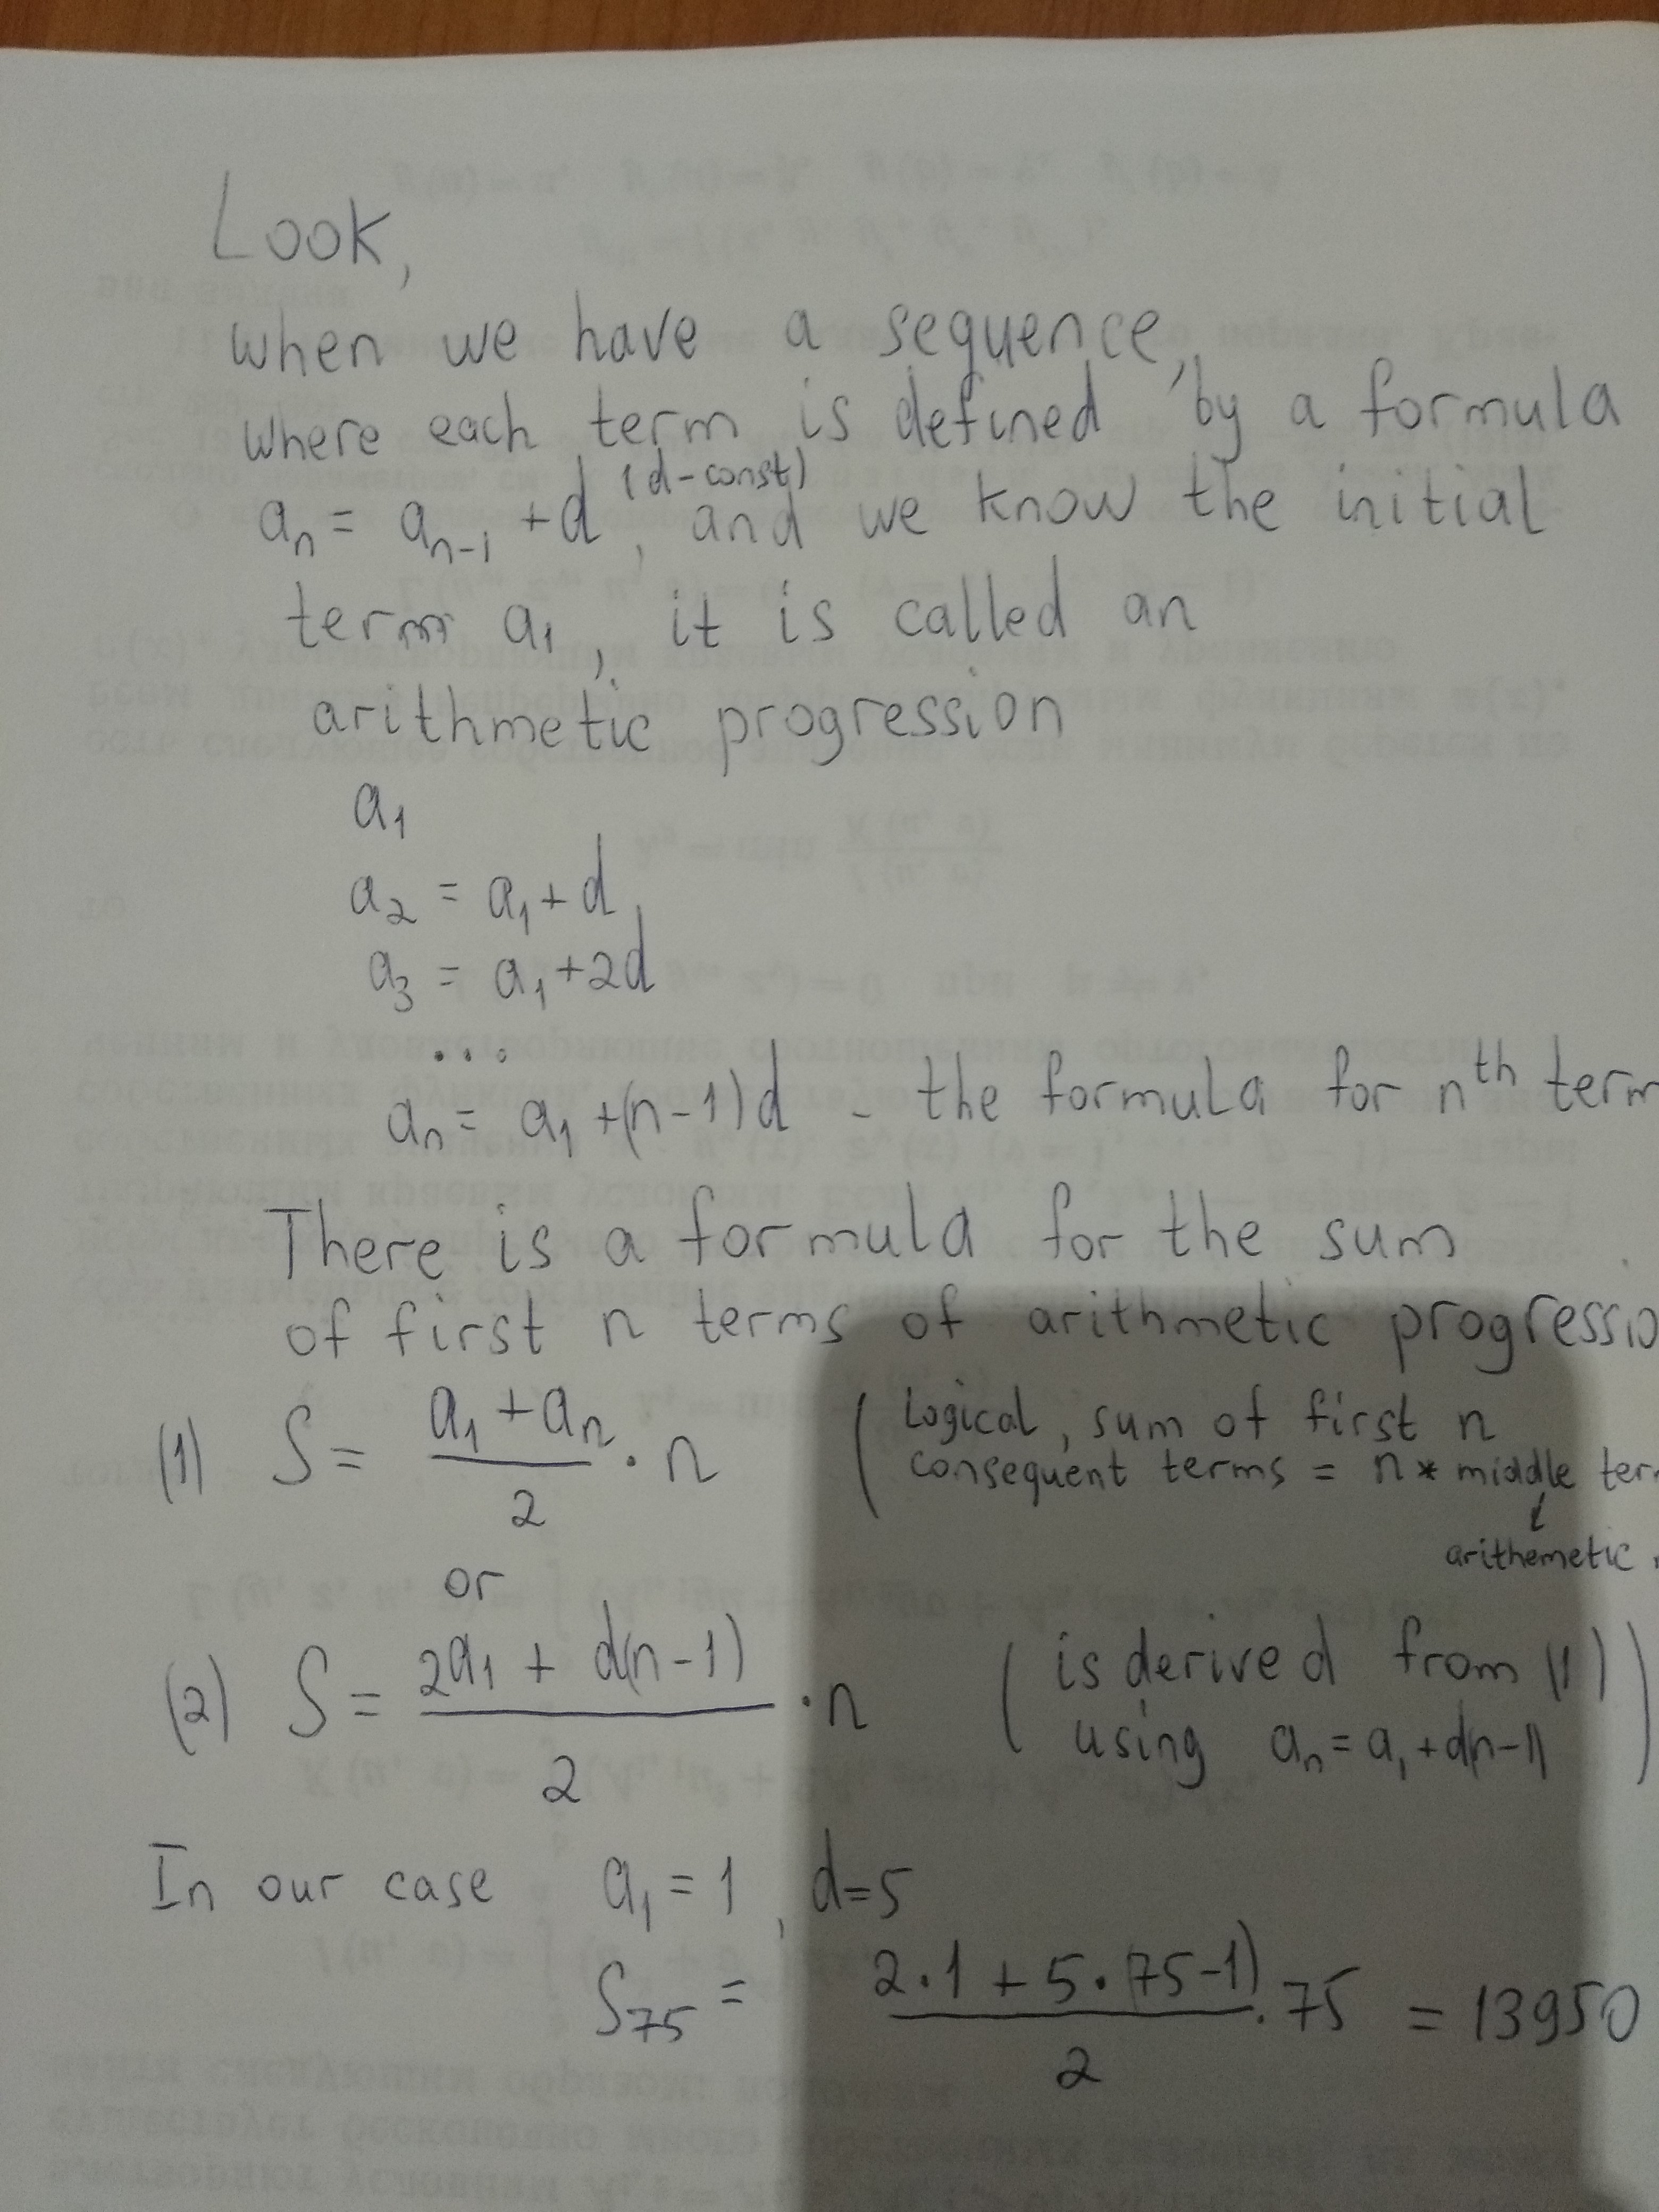 Look,
when we have a sequence,
where each term is defined by a formula
aₙ = aₙ₋₁ + d (d-const), and we know the initial
term a₁, it is called an
arithmetic progression
a₁
a₂ = a₁ + d
a₃ = a₁ + 2d
...
aₙ = a₁ + (n-1)d - the formula for nᵗʰ term
There is a formula for the sum
of first n terms of arithmetic progressio
(1) S = (a₁ + aₙ)/2 · n (Logical, sum of first n
consequent terms = n * middle ter
arithemetic
or
(2) S = (2a₁ + d(n-1))/2 · n (is derived from (1)
using aₙ = a₁ + d(n-1))
In our case a₁ = 1, d=5
S₇₅ = (2·1 + 5·(75-1))/2 · 75 = 13950